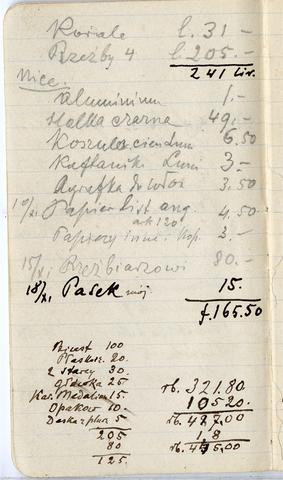 Korale l. 31 -
Rzeźby 4 l 205. -
241 Lir.
Nice.
Aluminium 1. -
Halka czarna 49. -
Koszula 6.50
Kaftaniki Luni 3. -
Agrafka do włos 3.50
10/XI Papier list ang 4.50
ark 120
Papiery inne i kop. 3. -
15/XI Rzeźbiarzowi 80. -
18/XI Pasek mój 15.
f. 165.50
Biust 100
Płaskorz. 20.
2 starcy 30.
główka 25
Kas. Medalion 15
Opaków 10.
Deska plus 5
205
80
125.
rb. 321.80
105 20.
rb. 427.00
18
rb. 445.00